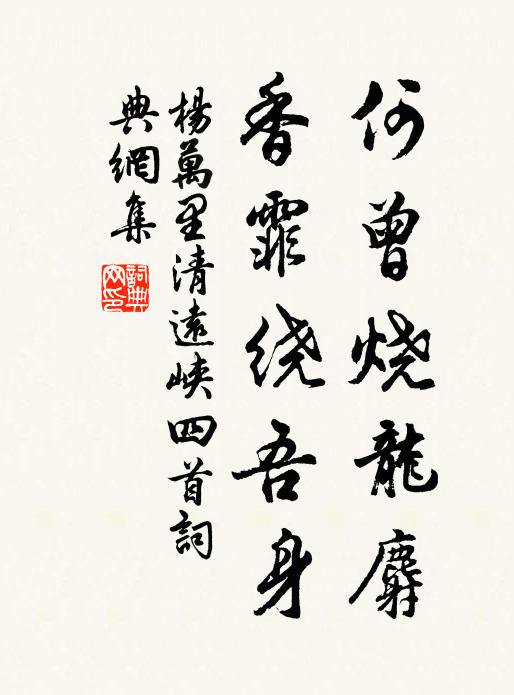 何曾烧龍麝
香霏绕吾身
楊萬里清遠峡四首詞
典網集
詞典
网印